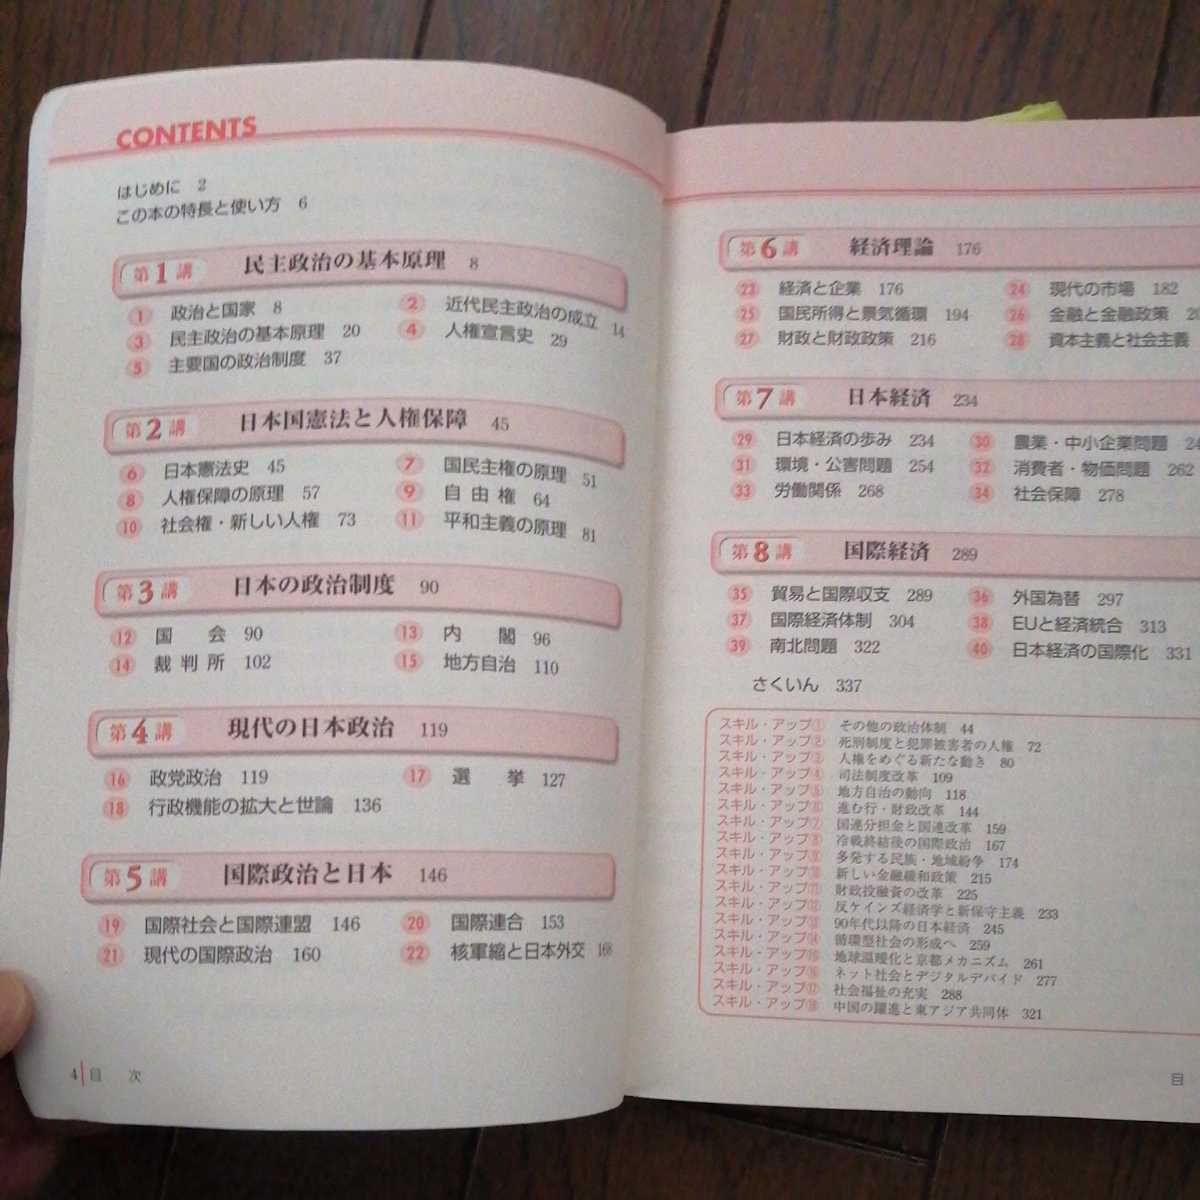 CONTENTS
はじめに 2
この本の特長と使い方 6
第1講 民主政治の基本原理 8
① 政治と国家 8 ② 近代民主政治の成立 14
③ 民主政治の基本原理 20 ④ 人権宣言史 29
⑤ 主要国の政治制度 37
第2講 日本国憲法と人権保障 45
⑥ 日本憲法史 45 ⑦ 国民主権の原理 51
⑧ 人権保障の原理 57 ⑨ 自由権 64
⑩ 社会権・新しい人権 73 ⑪ 平和主義の原理 81
第3講 日本の政治制度 90
⑫ 国会 90 ⑬ 内閣 96
⑭ 裁判所 102 ⑮ 地方自治 110
第4講 現代の日本政治 119
⑯ 政党政治 119 ⑰ 選挙 127
⑱ 行政機能の拡大と世論 136
第5講 国際政治と日本 146
⑲ 国際社会と国際連盟 146 ⑳ 国際連合 153
㉑ 現代の国際政治 160 ㉒ 核軍縮と日本外交 168
4 目次
第6講 経済理論 176
㉓ 経済と企業 176 ㉔ 現代の市場 182
㉕ 国民所得と景気循環 194 ㉖ 金融と金融政策 20
㉗ 財政と財政政策 216 ㉘ 資本主義と社会主義
第7講 日本経済 234
㉙ 日本経済の歩み 234 ㉚ 農業・中小企業問題 24
㉛ 環境・公害問題 254 ㉜ 消費者・物価問題 262
㉝ 労働関係 268 ㉞ 社会保障 278
第8講 国際経済 289
㉟ 貿易と国際収支 289 ㊱ 外国為替 297
㊲ 国際経済体制 304 ㊳ EUと経済統合 313
㊴ 南北問題 322 ㊵ 日本経済の国際化 331
さくいん 337
スキル・アップ① その他の政治体制 44
スキル・アップ② 死刑制度と犯罪被害者の人権 72
スキル・アップ③ 人権をめぐる新たな動き 80
スキル・アップ④ 司法制度改革 109
スキル・アップ⑤ 地方自治の動向 118
スキル・アップ⑥ 進む行・財政改革 144
スキル・アップ⑦ 国連分担金と国連改革 159
スキル・アップ⑧ 冷戦終結後の国際政治 167
スキル・アップ⑨ 多発する民族・地域紛争 174
スキル・アップ⑩ 新しい金融緩和政策 215
スキル・アップ⑪ 財政投融資の改革 225
スキル・アップ⑫ 反ケインズ経済学と新保守主義 233
スキル・アップ⑬ 90年代以降の日本経済 245
スキル・アップ⑭ 循環型社会の形成へ 259
スキル・アップ⑮ 地球温暖化と京都メカニズム 261
スキル・アップ⑯ ネット社会とデジタルデバイド 277
スキル・アップ⑰ 社会福祉の充実 288
スキル・アップ⑱ 中国の躍進と東アジア共同体 321
目